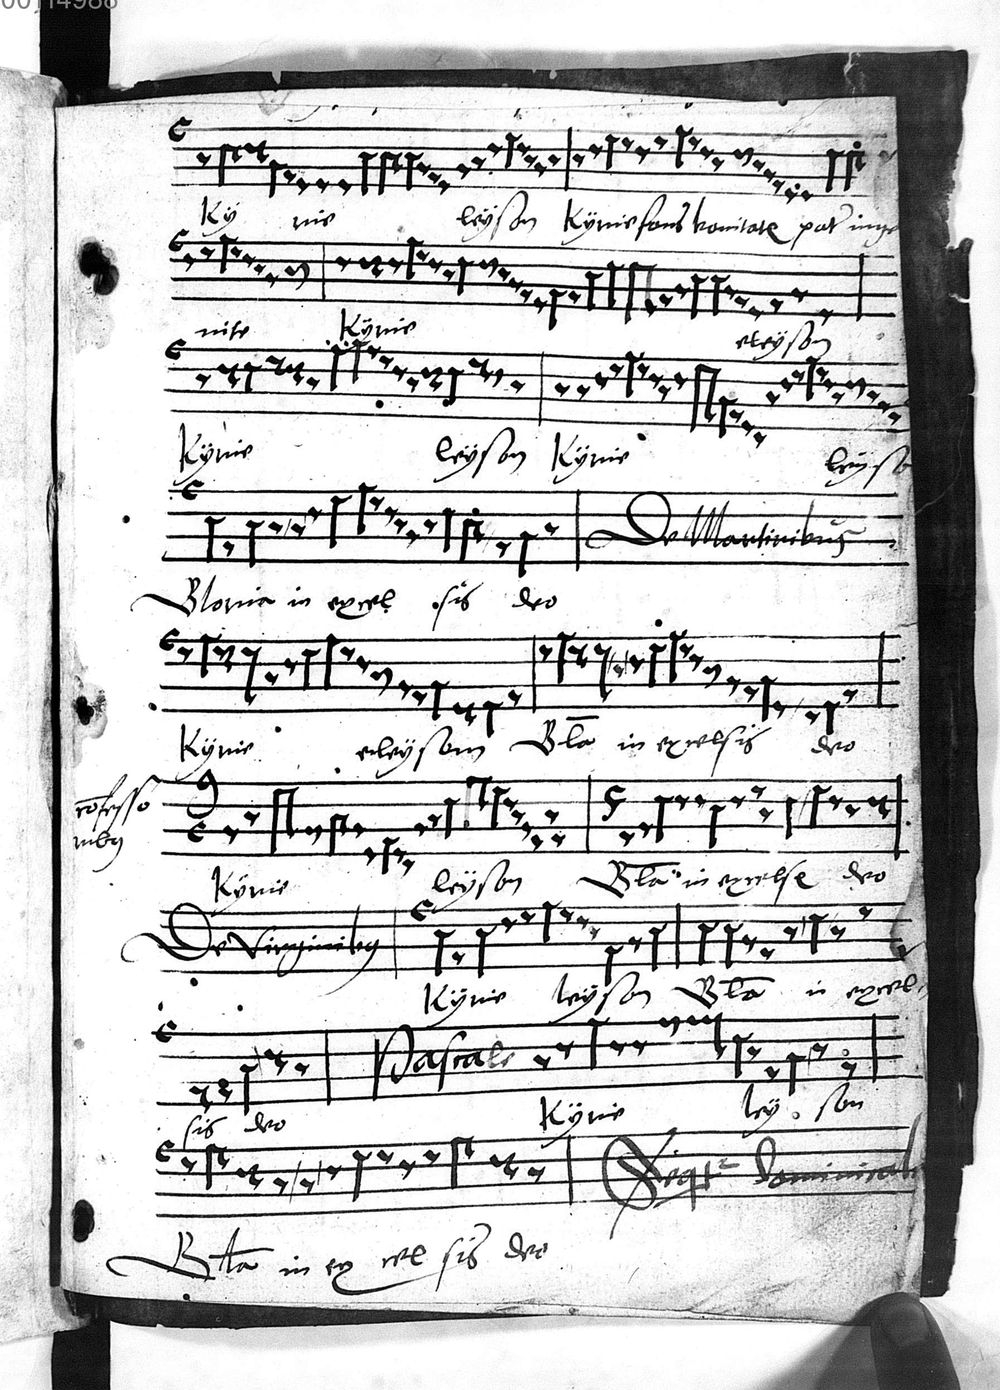 00114988
Ky rie leyson Kyrie fons bonitatis pat inge
nite Kyrie eleyson
Kyrie leyson Kyrie leyso
De Martiribus
Gloria in excel sis deo
Kyrie eleyson Gla in excelsis deo
cofesso
ribus
Kyrie leyson Gla in excelse deo
De Virginibus
Kyrie leyson Gla in excel
Pascale
sis deo Kyrie ley son
Seqr Dominical
Gla in ex cel sis deo